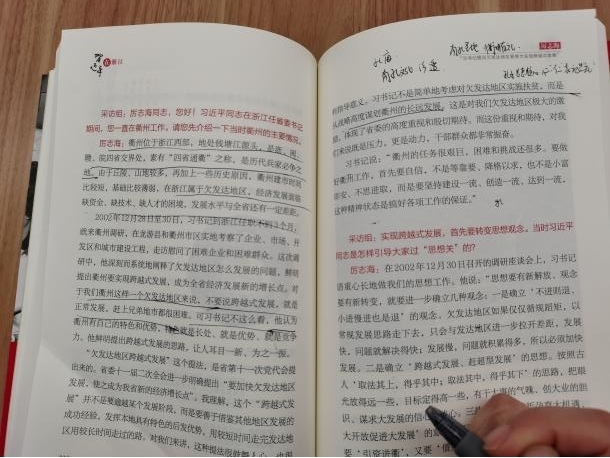 在浙江
采访组：厉志海同志，您好！习近平同志在浙江任省委书记
期间，您一直在衢州工作。请您先介绍一下当时衢州的主要情况。
厉志海：衢州位于浙江西部，地处钱塘江源头，是浙、闽、
赣、皖四省交界处，素有“四省通衢”之称，是历代兵家必争之
地。由于丘陵、山地较多，再加上一些历史原因，衢州建市时间
比较短，基础比较薄弱，在浙江属于欠发达地区，经济发展面临
缺资金、缺技术、缺人才的困境，发展水平与全省还有一定差距。
2002年12月28日至30日，习书记到浙江任职不到3个月，
就来衢州调研，在龙游县和衢州市区实地考察了企业、市场、开
发区和城市建设工程，走访慰问了困难企业和困难群众。这次调
研中，他深刻而系统地阐释了欠发达地区怎么发展的问题，鲜明
提出衢州要实现跨越式发展，成为全省经济发展新的增长点。对
于我们衢州这样一个欠发达地区来说，不要说跨越式发展，就是
正常发展，赶上兄弟地市都很困难。可习书记不这么看，他认为
衢州有自己的特色和优势，特色就是长处、就是优势、就是竞争
力。他解释提出跨越式发展的思路，让人耳目一新、为之一振。
“欠发达地区跨越式发展”这个提法，是省第十一次党代会提
出来的。省委十一届二次全会进一步明确提出“要加快欠发达地区
发展，使之成为我省新的经济增长点”。我理解，这个“跨越式发
展”并不是要逾越某个发展阶段，而是要善于借鉴其他地区发展的
成功经验，发挥本地具有特色的后发优势，用较短时间走完发达地
区用较长时间走过的路。对我们来讲，这种提法很鼓舞人心，也很
孔庙
厉志海
指导意义。习书记不是简单地考虑对欠发达地区实施扶贫，而是
从战略高度谋划衢州的长远发展。这是对我们欠发达地区极大的激
励，体现了省委的高度重视和殷切期待。而这份重视和期待，对我
们来说既是压力，更是动力，干部群众都非常振奋。
习书记说：“衢州的任务很艰巨，困难和挑战还很多。要做
好衢州工作，首先要自信，不是等靠要、降格以求，也不是小富
即安、不思进取，而是要坚持建设一流、创造一流、达到一流，
这种精神状态是搞好各项工作的保证。”
采访组：实现跨越式发展，首先要转变思想观念。当时习近平
同志是怎样引导大家过“思想关”的？
厉志海：在2002年12月30日召开的调研座谈会上，习书记
语重心长地做我们的思想工作。他说：“思想要有新解放、观念
要有新转变，就要进一步确立几种观念：一是确立‘不进则退、
小进慢进也是退’的观念。欠发达地区如果仅仅循规蹈矩，以
常规发展思路走下去，只会与发达地区进一步拉开差距，发展
快，问题就解决得快；发展慢，问题就积累得多，所以必须加快
发展。二是确立‘跨越式发展、赶超型发展’的思想。按照古
人‘取法其上，得乎其中；取法其中，得乎其下’的思路，把眼
光放得远一些，目标定得高一些，有干大事的气魄、创大业的胆
识、谋求大发展的信心
大开放促进大发展’的
要‘引资讲衢’，又要